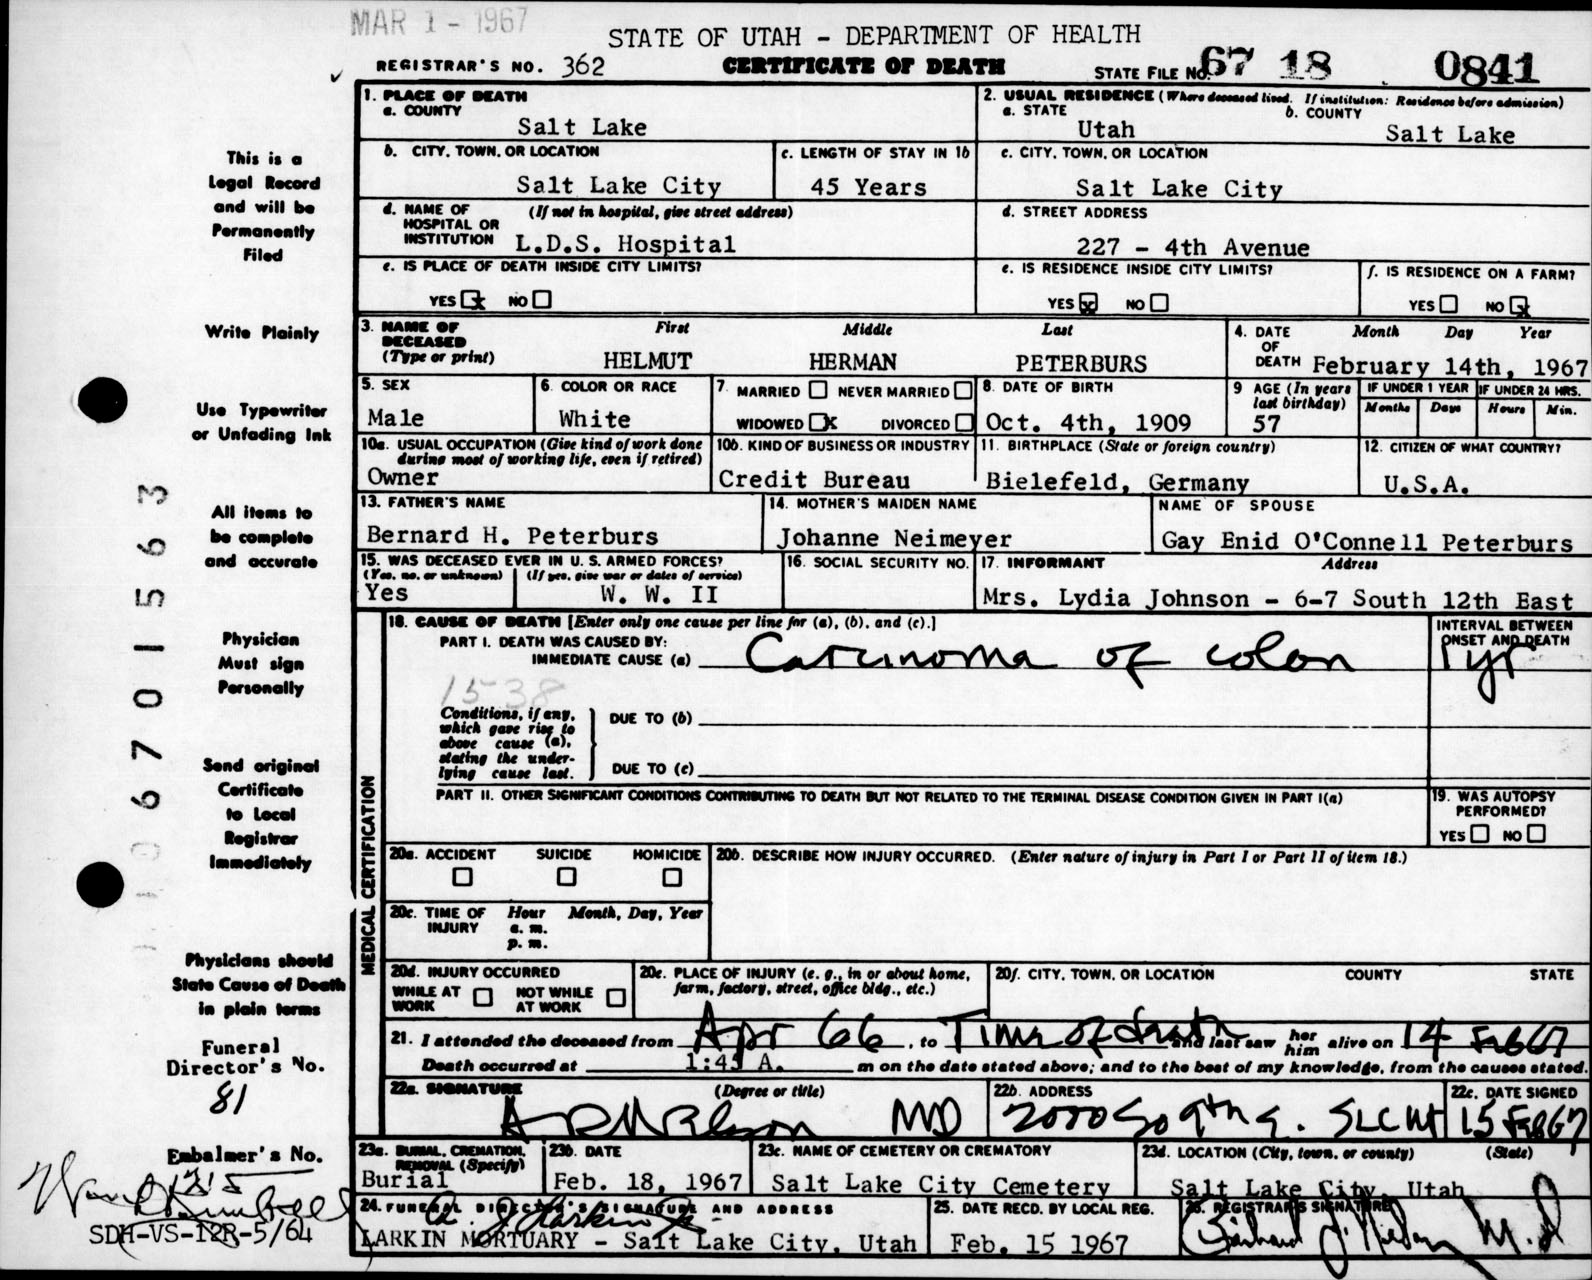 MAR 1 - 1967
STATE OF UTAH - DEPARTMENT OF HEALTH
REGISTRAR'S NO. 362 CERTIFICATE OF DEATH STATE FILE NO. 67 18 0841
1. PLACE OF DEATH
a. COUNTY
Salt Lake
2. USUAL RESIDENCE (Where deceased lived. If institution: Residence before admission)
a. STATE b. COUNTY
Utah Salt Lake
b. CITY, TOWN, OR LOCATION
Salt Lake City
c. LENGTH OF STAY IN 1b
45 Years
c. CITY, TOWN, OR LOCATION
Salt Lake City
d. NAME OF HOSPITAL OR INSTITUTION (If not in hospital, give street address)
L.D.S. Hospital
d. STREET ADDRESS
227 - 4th Avenue
e. IS PLACE OF DEATH INSIDE CITY LIMITS?
YES x NO
e. IS RESIDENCE INSIDE CITY LIMITS?
YES x NO
f. IS RESIDENCE ON A FARM?
YES NO x
3. NAME OF DECEASED (Type or print)
First Middle Last
HELMUT HERMAN PETERBURS
4. DATE OF DEATH Month Day Year
February 14th, 1967
5. SEX
Male
6. COLOR OR RACE
White
7. MARRIED NEVER MARRIED
WIDOWED x DIVORCED
8. DATE OF BIRTH
Oct. 4th, 1909
9 AGE (In years last birthday)
57
IF UNDER 1 YEAR IF UNDER 24 HRS.
Months Days Hours Min.
10a. USUAL OCCUPATION (Give kind of work done during most of working life, even if retired)
Owner
10b. KIND OF BUSINESS OR INDUSTRY
Credit Bureau
11. BIRTHPLACE (State or foreign country)
Bielefeld, Germany
12. CITIZEN OF WHAT COUNTRY?
U.S.A.
13. FATHER'S NAME
Bernard H. Peterburs
14. MOTHER'S MAIDEN NAME
Johanne Neimeyer
NAME OF SPOUSE
Gay Enid O'Connell Peterburs
15. WAS DECEASED EVER IN U.S. ARMED FORCES?
(Yes, no, or unknown) (If yes, give war or dates of service)
Yes W. W. II
16. SOCIAL SECURITY NO.
17. INFORMANT Address
Mrs. Lydia Johnson - 6-7 South 12th East
18. CAUSE OF DEATH [Enter only one cause per line for (a), (b), and (c).]
PART I. DEATH WAS CAUSED BY:
IMMEDIATE CAUSE (a) Carcinoma of colon
INTERVAL BETWEEN ONSET AND DEATH
1 yr
1538
Conditions, if any, which gave rise to above cause (a), stating the underlying cause last.
DUE TO (b)
DUE TO (c)
PART II. OTHER SIGNIFICANT CONDITIONS CONTRIBUTING TO DEATH BUT NOT RELATED TO THE TERMINAL DISEASE CONDITION GIVEN IN PART I(a)
19. WAS AUTOPSY PERFORMED?
YES NO
MEDICAL CERTIFICATION
20a. ACCIDENT SUICIDE HOMICIDE
20b. DESCRIBE HOW INJURY OCCURRED. (Enter nature of injury in Part I or Part II of item 18.)
20c. TIME OF INJURY Hour Month, Day, Year
a. m.
p. m.
20d. INJURY OCCURRED
WHILE AT WORK NOT WHILE AT WORK
20e. PLACE OF INJURY (e. g., in or about home, farm, factory, street, office bldg., etc.)
20f. CITY, TOWN, OR LOCATION COUNTY STATE
21. I attended the deceased from Apr 66, to Time of death and last saw her him alive on 14 Feb 67
Death occurred at 1:45 A. m on the date stated above; and to the best of my knowledge, from the causes stated.
22a. SIGNATURE (Degree or title)
MD
22b. ADDRESS
2000 So 9th E. SLC Ut
22c. DATE SIGNED
15 Feb 67
23a. BURIAL, CREMATION, REMOVAL (Specify)
Burial
23b. DATE
Feb. 18, 1967
23c. NAME OF CEMETERY OR CREMATORY
Salt Lake City Cemetery
23d. LOCATION (City, town, or county) (State)
Salt Lake City, Utah
24. FUNERAL DIRECTOR'S SIGNATURE AND ADDRESS
LARKIN MORTUARY - Salt Lake City, Utah
25. DATE RECD. BY LOCAL REG.
Feb. 15 1967
26. REGISTRAR'S SIGNATURE
M.D
This is a
Legal Record
and will be
Permanently
Filed
Write Plainly
Use Typewriter
or Unfading Ink
All items to
be complete
and accurate
Physician
Must sign
Personally
Send original
Certificate
to Local
Registrar
Immediately
Physicians should
State Cause of Death
in plain terms
Funeral
Director's No.
81
Embalmer's No.
SDH-VS-12R-5/64
0670 1563